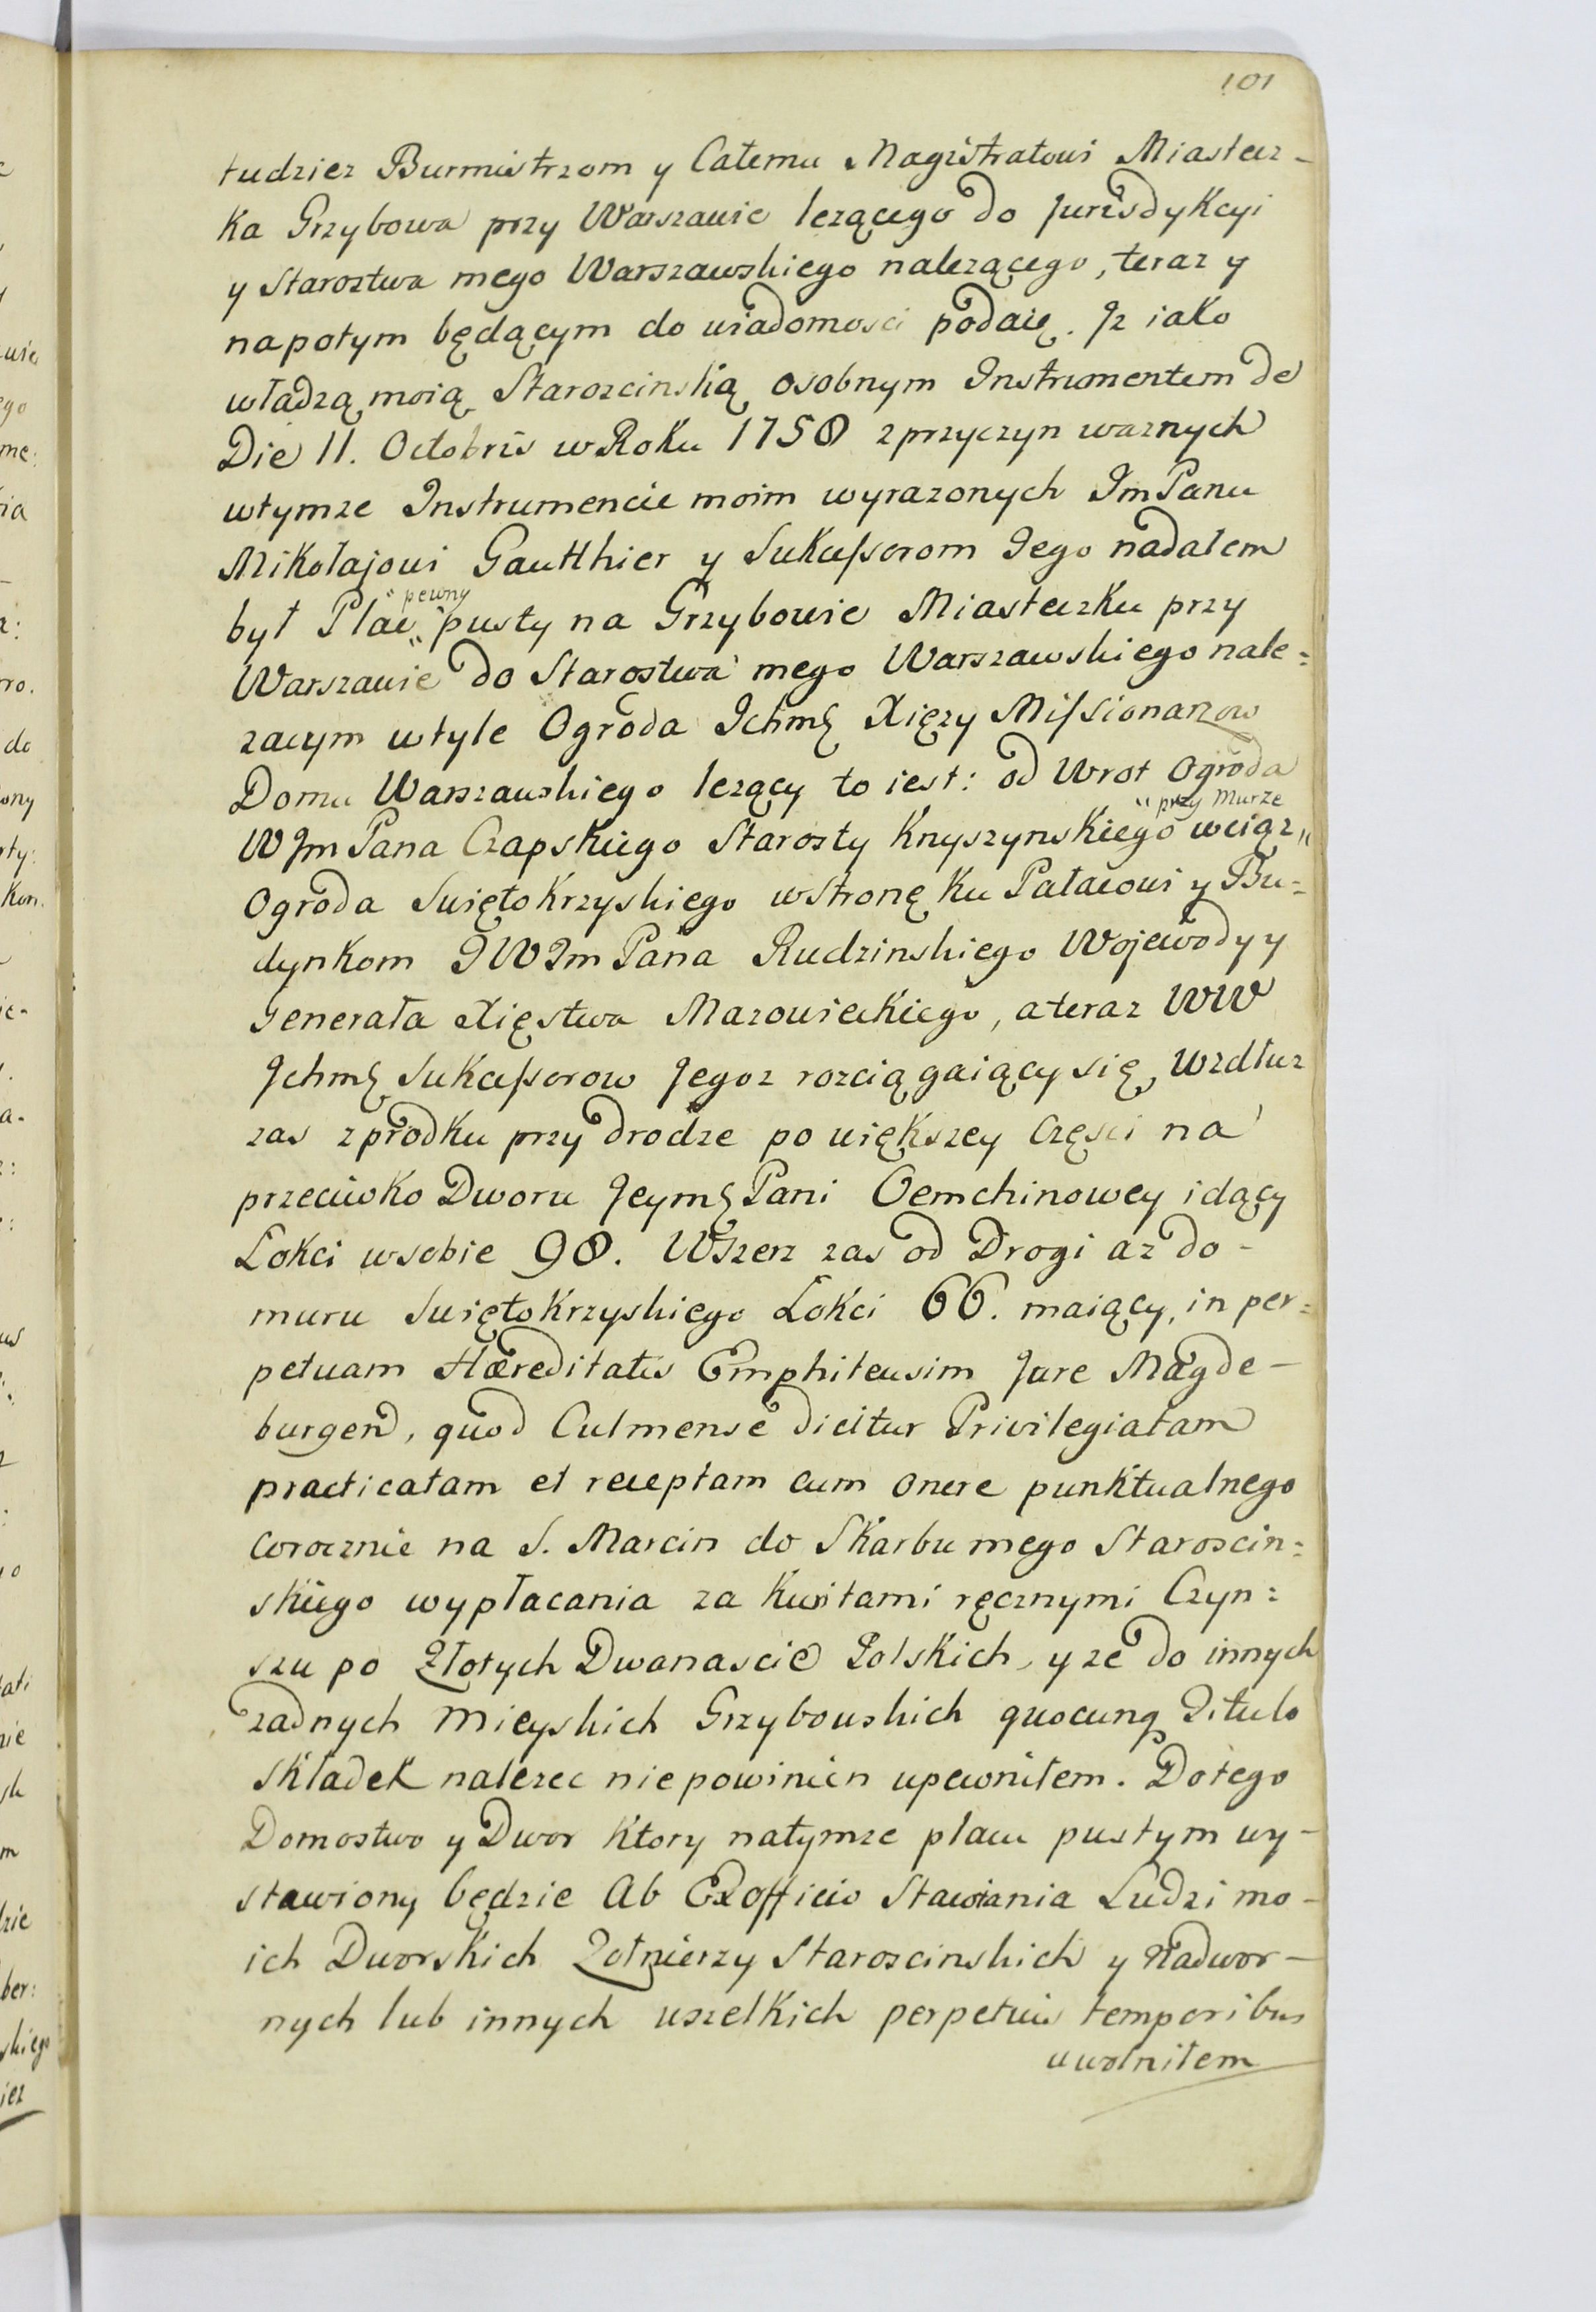 101
tudziez Burmistrzom y Całemu Magistratowi Miastecz-
ka Grzybowa przy Warszawie lezącego do Jurisdykcyi
y Starostwa mego Warszawskiego nalezącego, teraz y
napotym będącym do wiadomosci podaię. Iz iako
władzą moią Staroscinską osobnym Instrumentem de
Die 11. Octobris w Roku 1758 z przyczyn waznych
wtymze Instrumencie moim wyrazonych Im Panu
Mikołajowi Gautthier y Sukcessorom Iego nadałem
pewny
był Plac pusty na Grzybowie Miasteczku przy
Warszawie do Starostwa mego Warszawskiego nale=
zacym wtyle Ogroda Ichmę Xięzy Missionarzow
Domu Warszawskiego lezący to iest: od Wrot Ogroda
przy Murze
W Jm Pana Czapskiego Starosty Knyszynskiego wciąz
Ogroda Swięto Krzyskiego wstronę ku Pałacowi y Bu=
dynkom JW Jm Pana Rudzinskiego Wojewody y
Generała Xięstwa Mazowieckiego, a teraz WW
Jchmę Sukcessorow Jegoz rozciągaiący się, Wzdłuz
zas z przodku przy drodze po większey Częsci na
przeciwko Dworu Jeymę Pani Oemchinowey idący
Łokci wsobie 98. Wszerz zas od Drogi az do-
muru Swięto Krzyskiego Łokci 66. maiący, in per=
petuam Hæreditatis Emphiteusim Jure Magde-
burgen, quod Culmense dicitur Privilegiatam
practicatam et receptam cum onere punktualnego
corocznie na S. Marcin do Skarbu mego Staroscin=
skiego wypłacania za Kwitami ręcznymi Czyn=
szu po Złotych Dwanascie Polskich, y ze do innych
zadnych Mieyskich Grzybowskich quocunq Titulo
Składek nalezec niepowinien upewniłem. Dotego
Domostwo y Dwor Ktory natymze placu pustym wy-
stawiony będzie Ab Exofficio Stawiania Ludzi mo-
ich Dworskich Zołnierzy Staroscinskich y Nadwor-
nych lub innych wszelkich perpetuis temporibus
uwolniłem